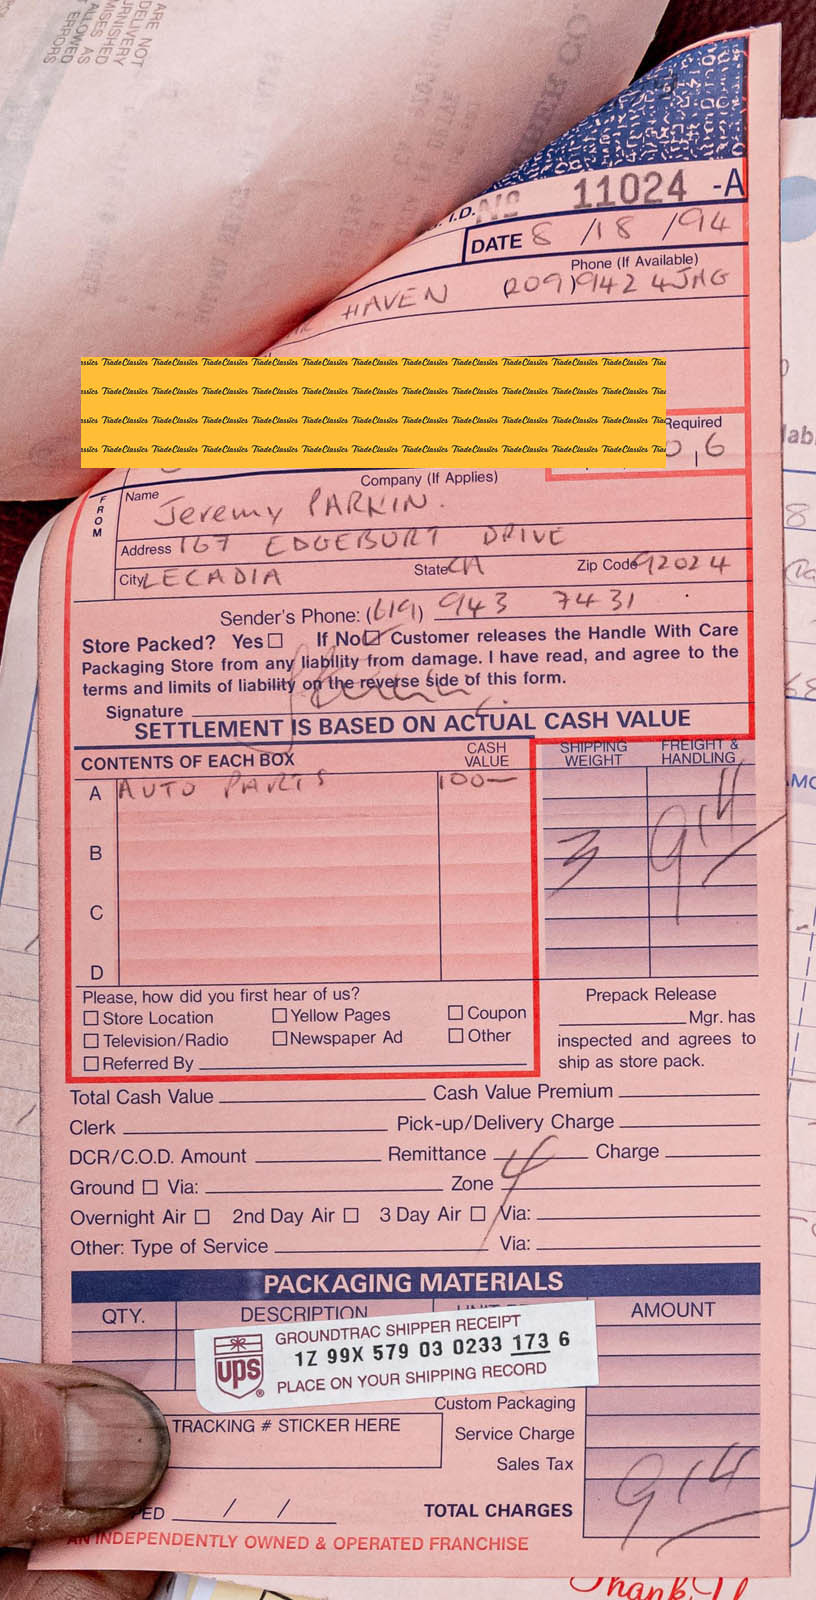 ARE NOT
DELIVERY
ALLOWED
ERRORS
I.D. No 11024 -A
DATE 8 /18 /94
Phone (If Available)
HAVEN (209)942
TradeClassics TradeClassics TradeClassics TradeClassics TradeClassics TradeClassics TradeClassics TradeClassics TradeClassics TradeClassics TradeClassics
TradeClassics TradeClassics TradeClassics TradeClassics TradeClassics TradeClassics TradeClassics TradeClassics TradeClassics TradeClassics TradeClassics
TradeClassics TradeClassics TradeClassics TradeClassics TradeClassics TradeClassics TradeClassics TradeClassics TradeClassics TradeClassics TradeClassics
TradeClassics TradeClassics TradeClassics TradeClassics TradeClassics TradeClassics TradeClassics TradeClassics TradeClassics TradeClassics TradeClassics
Required
6
Company (If Applies)
FROM
Name Jeremy PARKIN.
Address 167 EDGEBURT DRIVE
City LECADIA State CA Zip Code 92024
Sender's Phone: (619) 943 7431
Store Packed? Yes □ If No ☑ Customer releases the Handle With Care
Packaging Store from any liability from damage. I have read, and agree to the
terms and limits of liability on the reverse side of this form.
Signature
SETTLEMENT IS BASED ON ACTUAL CASH VALUE
CONTENTS OF EACH BOX CASH VALUE SHIPPING WEIGHT FREIGHT & HANDLING
A AUTO PARTS 100—
B 3 914
C
D
Please, how did you first hear of us? Prepack Release
□ Store Location □ Yellow Pages □ Coupon Mgr. has
□ Television/Radio □ Newspaper Ad □ Other inspected and agrees to
□ Referred By ship as store pack.
Total Cash Value Cash Value Premium
Clerk Pick-up/Delivery Charge
DCR/C.O.D. Amount Remittance Charge
Ground □ Via: Zone 4
Overnight Air □ 2nd Day Air □ 3 Day Air □ Via:
Other: Type of Service Via:
PACKAGING MATERIALS
QTY. DESCRIPTION AMOUNT
GROUNDTRAC SHIPPER RECEIPT
1Z 99X 579 03 0233 173 6
ups
PLACE ON YOUR SHIPPING RECORD
Custom Packaging
TRACKING # STICKER HERE Service Charge
Sales Tax
PED / / TOTAL CHARGES 914
AN INDEPENDENTLY OWNED & OPERATED FRANCHISE
Thank